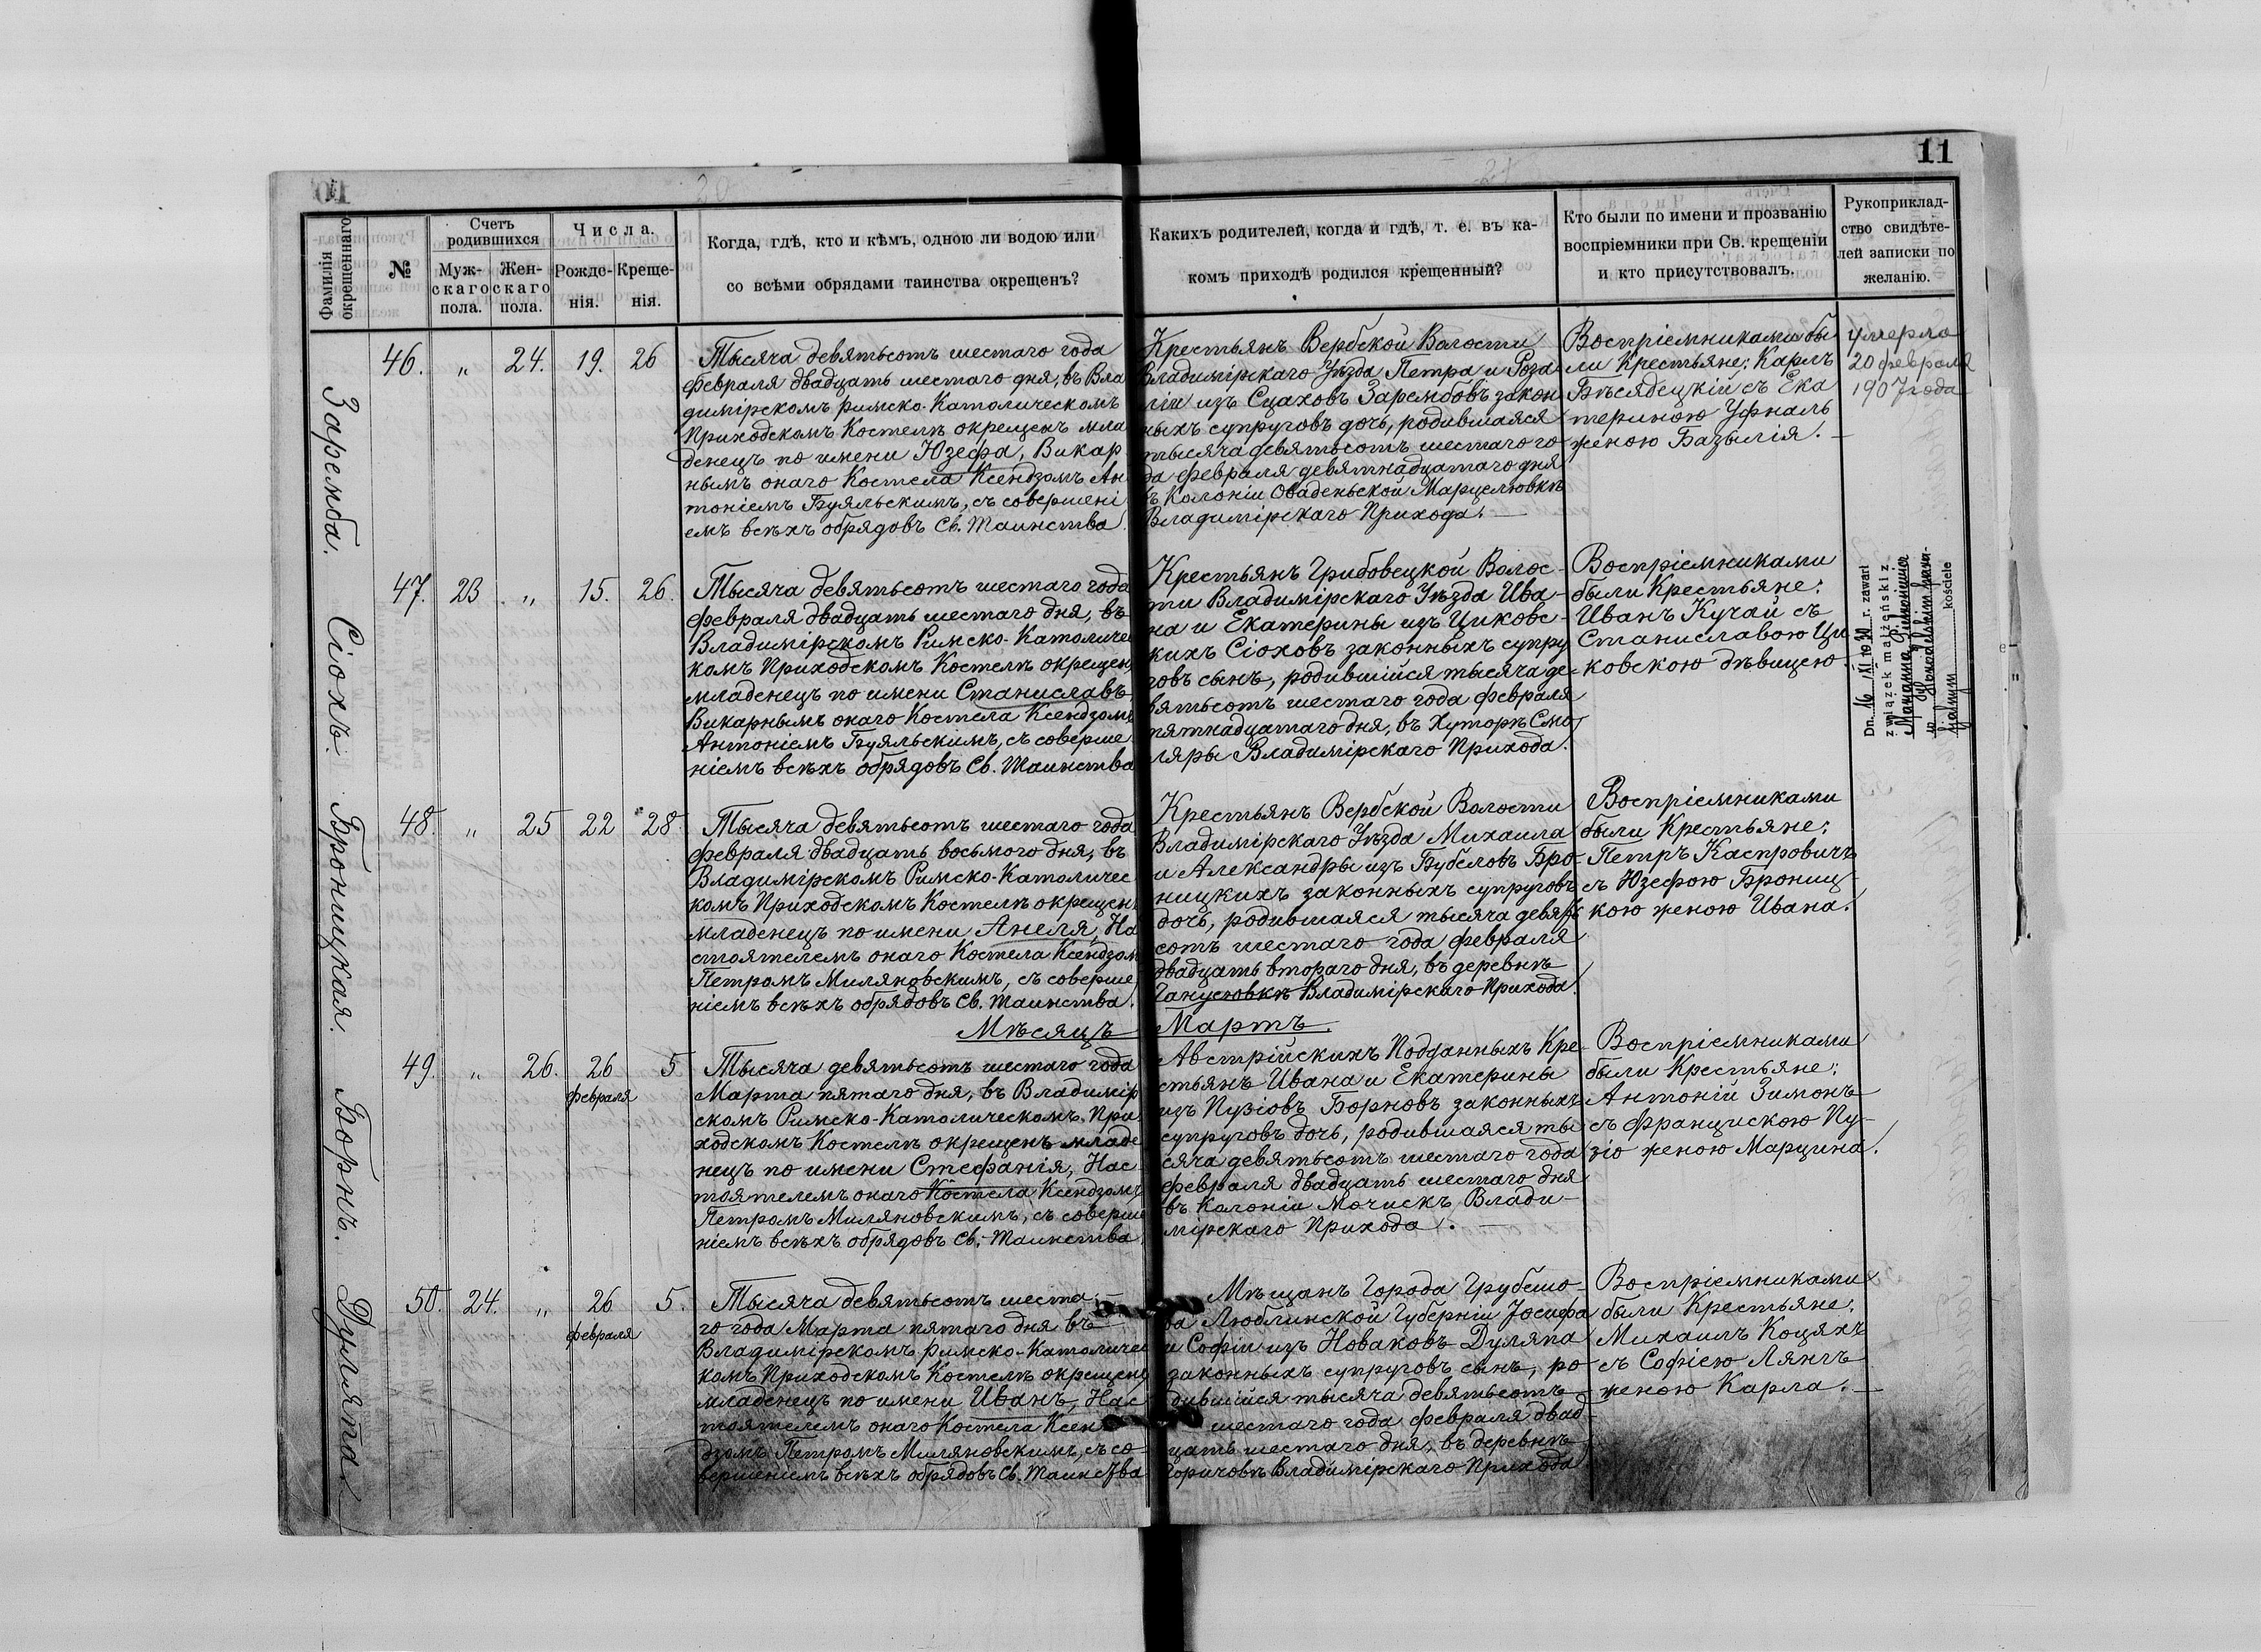 11
Фамилія окрещеннаго
№
Счетъ родившихся
Муж-
скаго
пола.
Жен-
скаго
пола.
Числа.
Рожде-
нія.
Креще-
нія.
Когда, гдѣ, кто и кѣмъ, одною ли водою или
со всѣми обрядами таинства окрещенъ?
Какихъ родителей, когда и гдѣ, т. е. въ ка-
комъ приходѣ родился крещенный?
Кто были по имени и прозванію
воспріемники при Св. крещеніи
и кто присутствовалъ.
Рукоприклад-
ство свидѣте-
лей записки по
желанію.
Заремба.
46. " 24. 19. 26
Тысяча девятьсотъ шестаго года
февраля двадцать шестаго дня, въ Вла
димірскомъ римско-Католическомъ
Приходскомъ Костелѣ окрещенъ мла
денецъ по имени Юзефа, Викар
нымъ онаго Костела Ксендзомъ Ан
тоніемъ Буяльскимъ, съ совершені
емъ всѣхъ обрядовъ Св. Таинства.
Крестьянъ Вербской Волости
Владимірскаго Уѣзда Петра и Роза
ліи изъ Сцаховъ Зарембовъ закон
ныхъ супруговъ дочь, родившаяся
тысяча девятьсотъ шестаго го-
да февраля девятнадцатаго дня
въ Колоніи Оваденьской Марцелювкѣ
Владимірскаго Прихода.
Воспріемниками бы
ли Крестьяне: Карлъ
Бѣсядецкій съ Ека
териною Уфналь
женою Базылія.
Умерла
20 февраля
1907 года
Сіохъ.
47. 23 " 15. 26.
Тысяча девятьсотъ шестаго года
февраля двадцать шестаго дня, въ
Владимірскомъ Римско-Католичес
комъ Приходскомъ Костелѣ окрещенъ
младенецъ по имени Станиславъ
Викарнымъ онаго Костела Ксендзомъ
Антоніемъ Буяльскимъ, съ соверше
ніемъ всѣхъ обрядовъ Св. Таинства
Крестьянъ Грибовецкой Волос-
ти Владимірскаго Уѣзда Ива-
на и Екатерины изъ Циковс-
кихъ Сіоховъ законныхъ супру
говъ сынъ, родившійся тысяча де-
вятьсотъ шестаго года февраля
пятнадцатаго дня, въ Хуторѣ Смо
ляры Владимірскаго Прихода.
Воспріемниками
были Крестьяне:
Иванъ Кучай съ
Станиславою Ци
ковскою дѣвицею.
Dn. 16 /XI 1930 r. zawarł
związek małżeński z
kościele
Броницкая.
48. " 25 22 28.
Тысяча девятьсотъ шестаго года
февраля двадцать восьмого дня, въ
Владимірскомъ Римско-Католичес
комъ Приходскомъ Костелѣ окрещенъ
младенецъ по имени Анеля, На
стоятелемъ онаго Костела Ксендзом
Петромъ Миляновскимъ, съ соверше
ніемъ всѣхъ обрядовъ Св. Таинства.
Крестьянъ Вербской Волости
Владимірскаго Уѣзда Михаила
и Александры изъ Бубеловъ Бро-
ницкихъ законныхъ супруговъ
дочь, родившаяся тысяча девять
сотъ шестаго года февраля
двадцать втораго дня, въ деревнѣ
Ганусювкѣ Владимірскаго Прихода.
Воспріемниками
были Крестьяне:
Петръ Каспровичъ
съ Юзефою Брониц-
кою женою Ивана.
Мѣсяцъ Мартъ.
Борнъ.
49. " 26. 26 февраля 5
Тысяча девятьсотъ шестаго года
Марта пятаго дня, въ Владимір
скомъ Римско-Католическомъ При
ходскомъ Костелѣ окрещенъ младе
нецъ по имени Стефанія, Нас
тоятелемъ онаго Костела Ксендзомъ
Петромъ Миляновскимъ, съ соверше
ніемъ всѣхъ обрядовъ Св. Таинства.
Австрійскихъ Подданныхъ Кре-
стьянъ Ивана и Екатерины
изъ Пузіовъ Борновъ законныхъ
супруговъ дочь, родившаяся ты
сяча девятьсотъ шестаго года
февраля двадцать шестаго дня
въ Колоніи Мочискъ Влади-
мірскаго Прихода.
Воспріемниками
были Крестьяне:
Антоній Зимонъ
съ Францискою Пу-
зіо женою Марцина.
Дуляпа
50. 24. " 26 февраля 5.
Тысяча девятьсотъ шеста-
го года Марта пятаго дня въ
Владимірскомъ римско-Католичес
комъ Приходскомъ Костелѣ окрещенъ
младенецъ по имени Иванъ, Нас
тоятелемъ онаго Костела Ксен
дзомъ Петромъ Миляновскимъ, съ со
вершеніемъ всѣхъ обрядовъ Св. Таинства
Мѣщанъ Города Грубешо-
ва Люблинской Губерніи Іосифа
и Софіи изъ Новаковъ Дуляпа
законныхъ супруговъ сынъ, ро
дившійся тысяча девятьсотъ
шестаго года февраля двад-
цать шестаго дня, въ деревнѣ
Горичовѣ Владимірскаго Прихода
Воспріемниками
были Крестьяне:
Михаилъ Коцяхъ
съ Софіею Лянгъ
женою Карла.